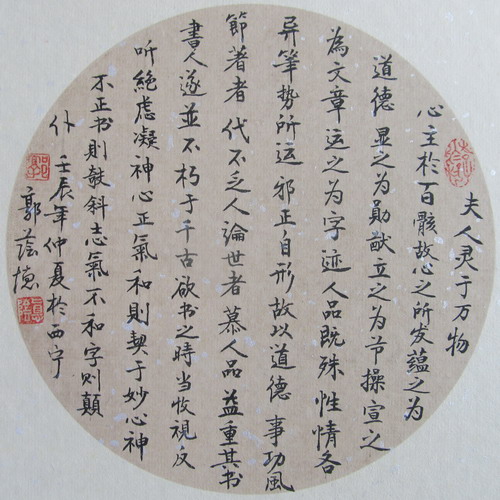 夫人灵于万物
心主於百骸故心之所发蕴之为
道德显之为勛猷立之为节操宣之
為文章运之为字迹人品既殊性情各
异筆势所运邪正自形故以道德事功風
節著者代不乏人論世者慕人品益重其书
書人遂並不朽于千古欲书之時当收視反
听絶虑凝神心正氣和則契于妙心神
不正书則敧斜志氣不和字则顛
仆 壬辰年仲夏於西宁
郭蔭